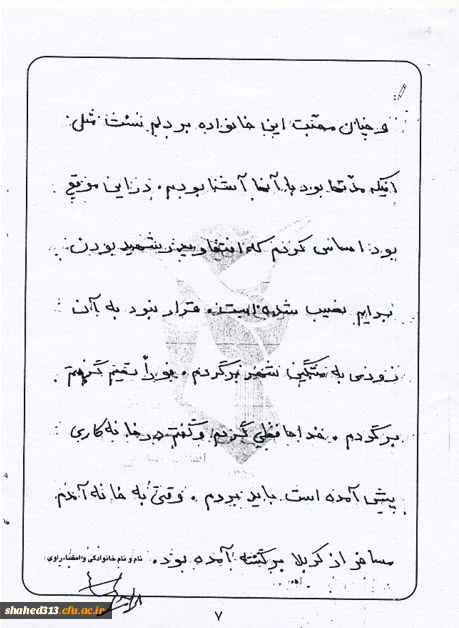 و چنان محبت این خانواده بر دلم نشست مثل
اینکه مدتها بود با آنها آشنا بودم. در این موقع
بود احساس کردم که افتخار پدر شهید بودن
برایم نصیب شده است. قرار نبود به آن
زودی به شهر برگردم. فوراً تصمیم گرفتم
برگردم. خداحافظی کردم و گفتم در خانه کاری
پیش آمده است باید بروم. وقتی به خانه آمدم
مسافر از کربلا برگشته آمده بود.
نام و نام خانوادگی و امضاء راوی:
shahed313.cfu.ac.ir
۷